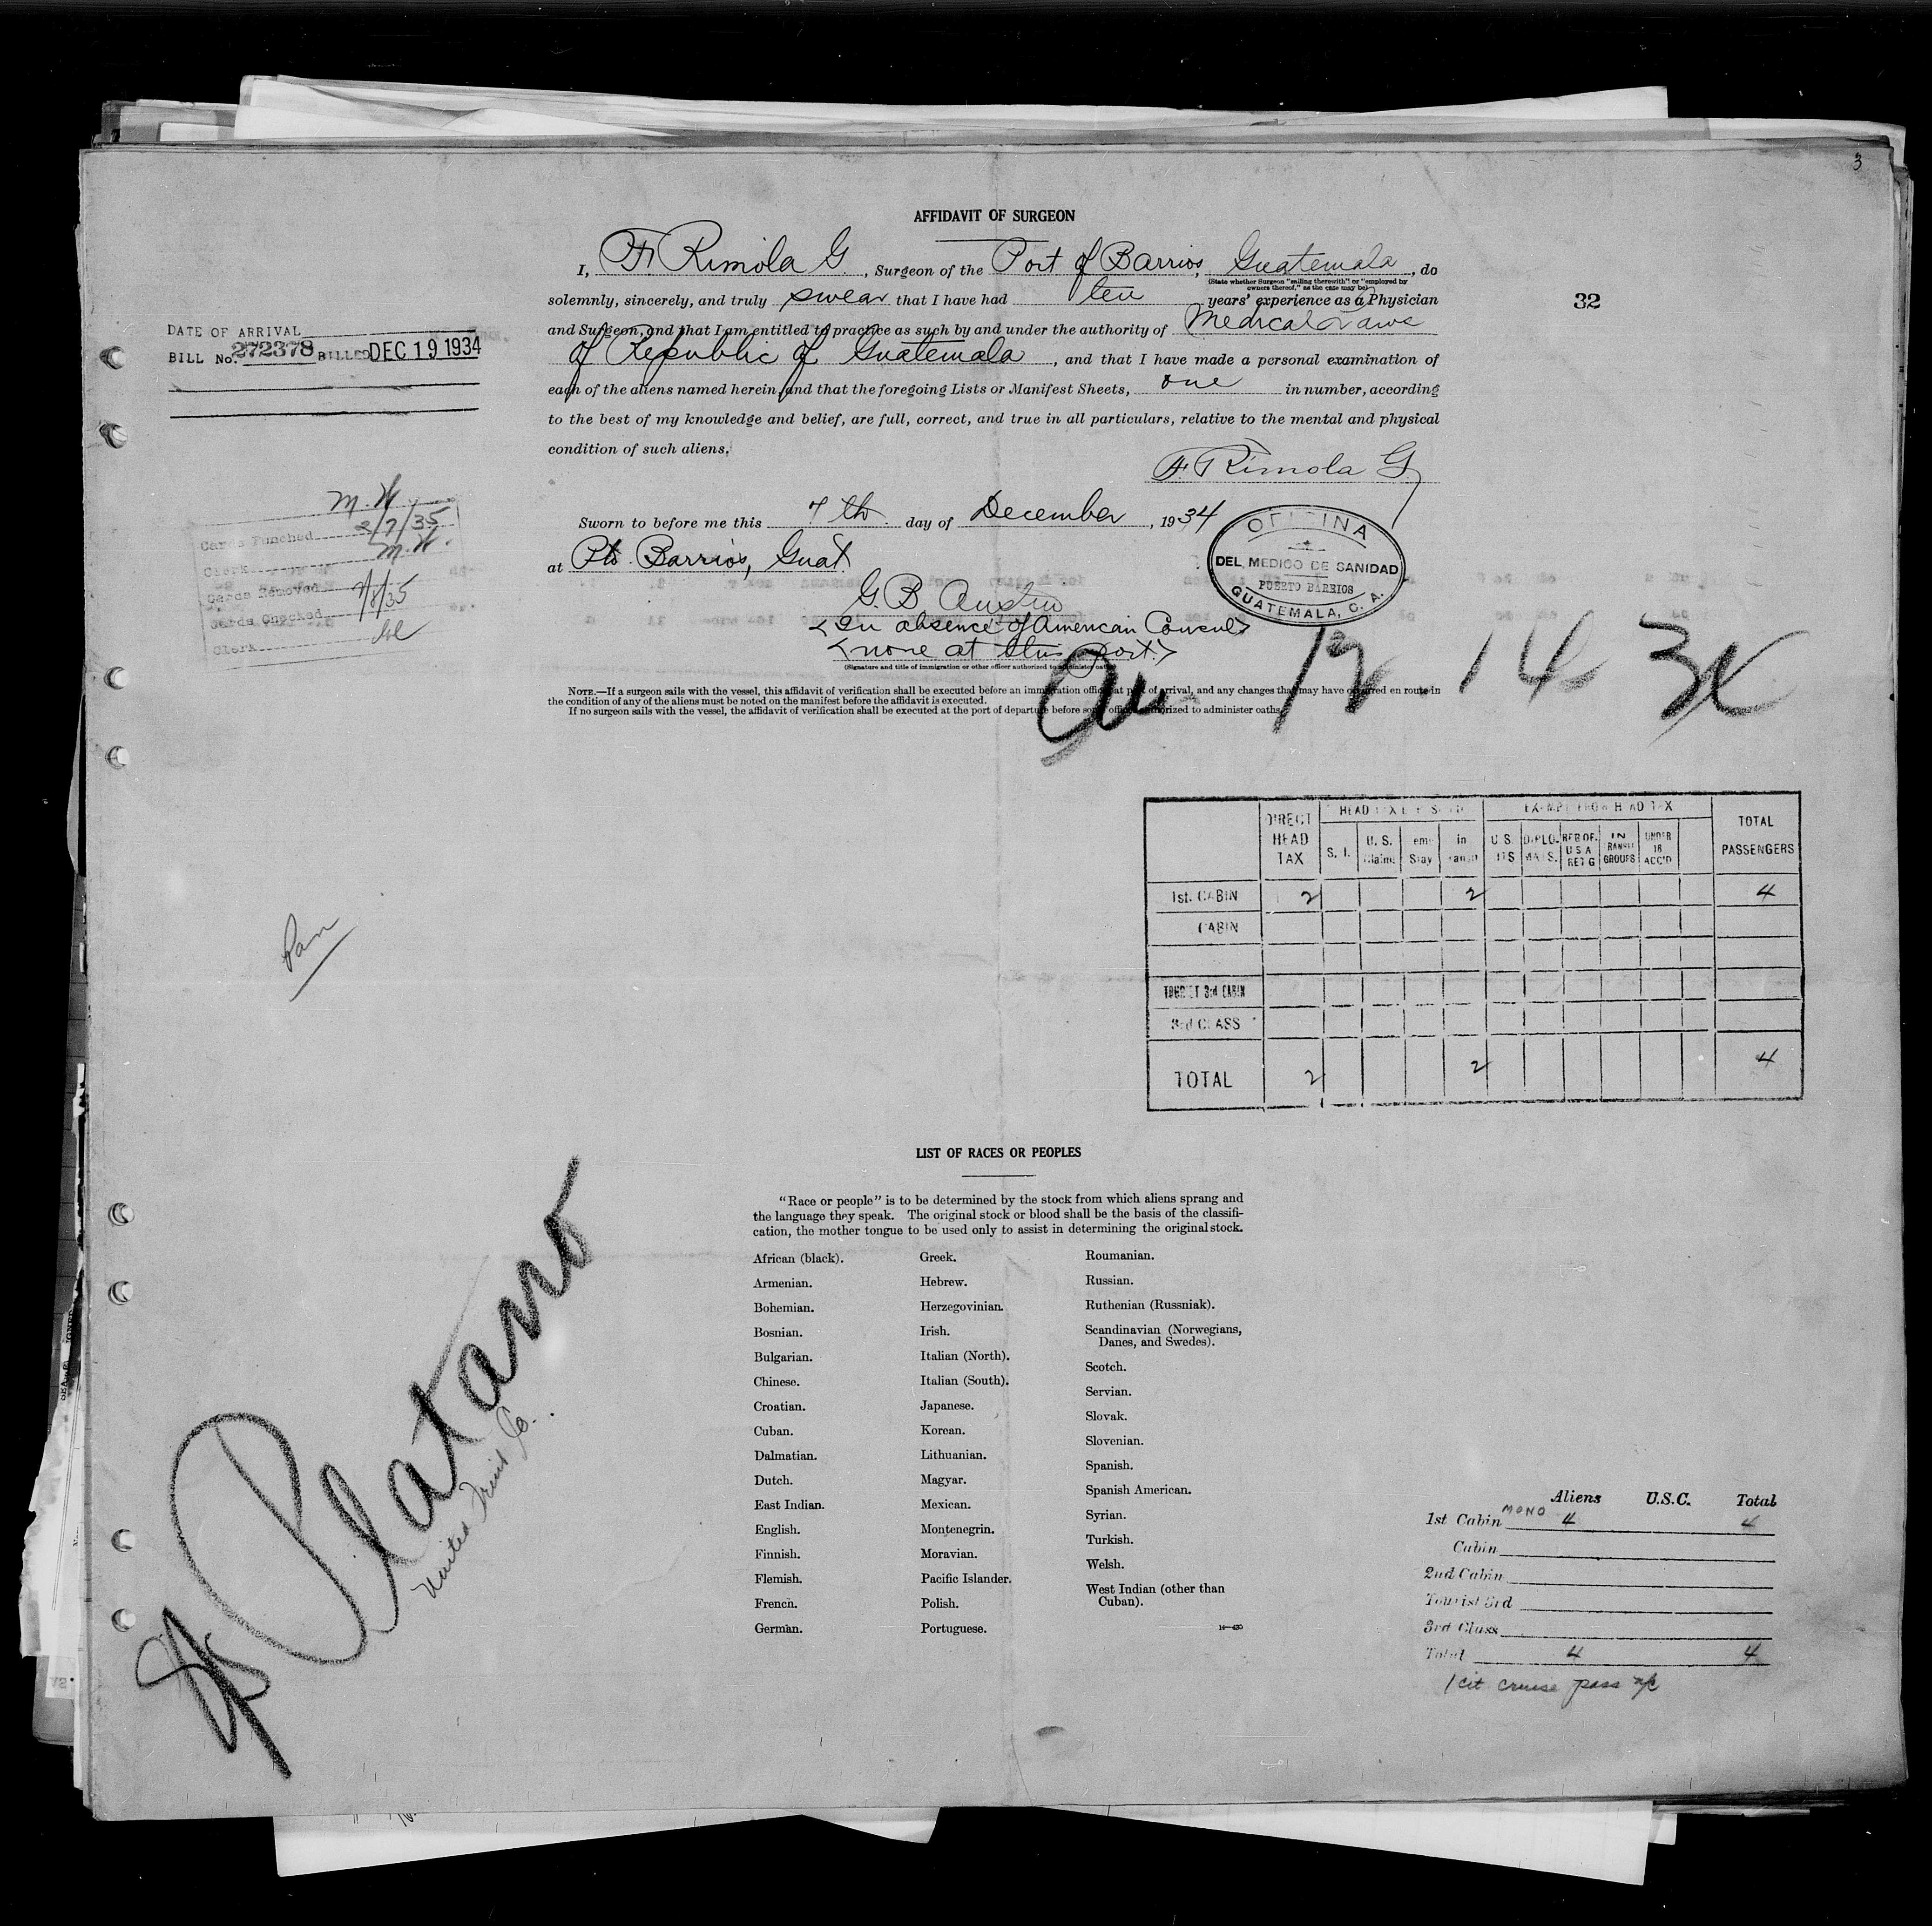 3
AFFIDAVIT OF SURGEON
I, F. Rimola G., Surgeon of the Port of Barrios, Guatemala, do
(State whether Surgeon "sailing therewith" or "employed by
owners thereof," as the case may be)
solemnly, sincerely, and truly swear that I have had ten years' experience as a Physician
32
and Surgeon, and that I am entitled to practice as such by and under the authority of Medical Laws
of Republic of Guatemala, and that I have made a personal examination of
each of the aliens named herein, and that the foregoing Lists or Manifest Sheets, one in number, according
to the best of my knowledge and belief, are full, correct, and true in all particulars, relative to the mental and physical
condition of such aliens.
F. Rimola G.
DATE OF ARRIVAL
BILL No. 272378 BILLED DEC 19 1934
M. W.
Cards Punched 2/7/35
Clerk M. W.
Cards Removed
Cards Checked 2/8/35
Clerk
Sworn to before me this 7th day of December, 1934
at Pto. Barrios, Guat.
OFICINA
DEL MEDICO DE SANIDAD
PUERTO BARRIOS
GUATEMALA, C. A.
G. B. Austin
<In absence of American Consul>
<none at this port.>
(Signature and title of immigration or other officer authorized to administer oaths)
12 14 34
NOTE.—If a surgeon sails with the vessel, this affidavit of verification shall be executed before an immigration officer at port of arrival, and any changes that may have occurred en route in
the condition of any of the aliens must be noted on the manifest before the affidavit is executed.
If no surgeon sails with the vessel, the affidavit of verification shall be executed at the port of departure before some officer authorized to administer oaths.
DIRECT HEAD TAX
EXEMPT FROM HEAD TAX
TOTAL PASSENGERS
S. I.
U. S. Claims
in Transit
DIPLOMATS.
IN TRANSIT GROUPS
UNDER 16 ACC'D
1st. CABIN 2 2 4
CABIN
TOURIST 3rd CABIN
3rd CLASS
TOTAL 2 2 4
Pan
LIST OF RACES OR PEOPLES
"Race or people" is to be determined by the stock from which aliens sprang and
the language they speak. The original stock or blood shall be the basis of the classifi-
cation, the mother tongue to be used only to assist in determining the original stock.
African (black).
Armenian.
Bohemian.
Bosnian.
Bulgarian.
Chinese.
Croatian.
Cuban.
Dalmatian.
Dutch.
East Indian.
English.
Finnish.
Flemish.
French.
German.
Greek.
Hebrew.
Herzegovinian.
Irish.
Italian (North).
Italian (South).
Japanese.
Korean.
Lithuanian.
Magyar.
Mexican.
Montenegrin.
Moravian.
Pacific Islander.
Polish.
Portuguese.
Roumanian.
Russian.
Ruthenian (Russniak).
Scandinavian (Norwegians,
Danes, and Swedes).
Scotch.
Servian.
Slovak.
Slovenian.
Spanish.
Spanish American.
Syrian.
Turkish.
Welsh.
West Indian (other than
Cuban).
Platano
United Fruit Co.
Aliens U.S.C. Total
1st Cabin MONO 4 4
Cabin
2nd Cabin
Tourist 3rd
3rd Class
Total 4 4
1 cit cruise pass